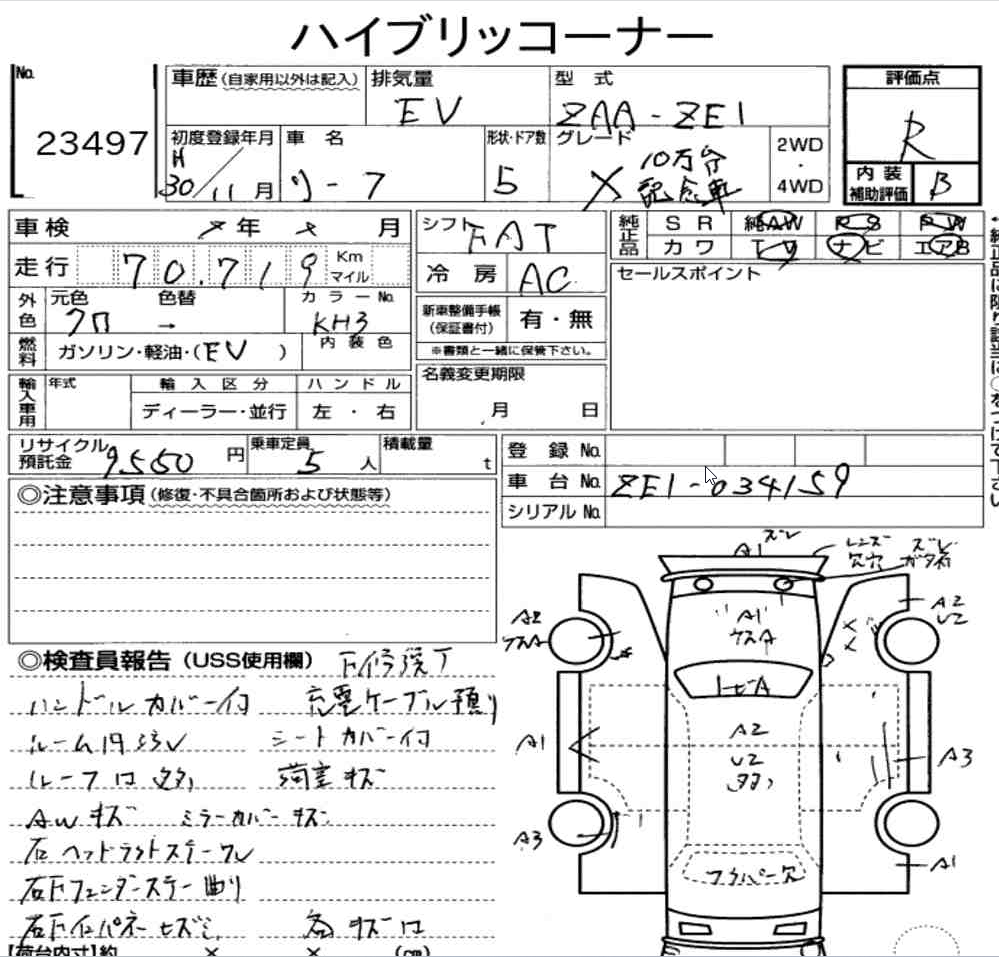 ハイブリッコーナー
No.
23497
車歴(自家用以外は記入)
排気量
EV
型式
ZAA-ZE1
評価点
R
内装
補助評価
B
初度登録年月
H
30/11月
車名
リ-7
形状・ドア数
5
グレード
X 10万台
記念車
2WD
・
4WD
車検
年 月
走行
70,719
Km
マイル
シフト
FAT
冷房
AC
純正品
SR 純AW PS PW
カワ TV ナビ エアB
セールスポイント
外色
元色
クロ
色替
→
カラーNo.
KH3
燃料
ガソリン・軽油・(EV)
内装色
新車整備手帳
(保証書付)
有・無
※書類と一緒に保管下さい。
輸入車用
年式
輸入区分
ディーラー・並行
ハンドル
左・右
名義変更期限
月 日
リサイクル
預託金
9550円
乗車定員
5人
積載量
t
登録No.
車台No.
ZE1-034159
シリアルNo.
◎注意事項(修復・不具合箇所および状態等)
◎検査員報告(USS使用欄)
ハンドルカバー付
充電ケーブル預り
シートカバー付
荷室キズ
AWキズ
ミラーカバーキズ
右ヘッドライトステークレ
右Fフェンダーステー曲り
右Fインパネーヒズミ
[荷台内寸]約 × × (cm)
A1
ズレ
レンズ
欠穴
ズレ
ガタ有
A2
A1
A2
U2
トビA
A1
A2
U2
多タ
A3
A3
A1
フラパー欠